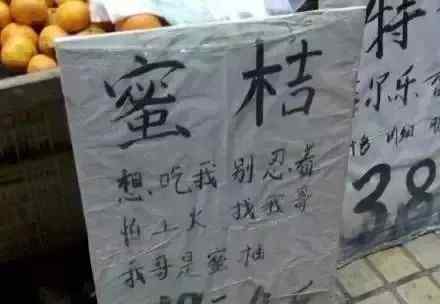 蜜桔
想吃我 别忍着
怕上火 找我哥
我哥是蜜柚
特
38